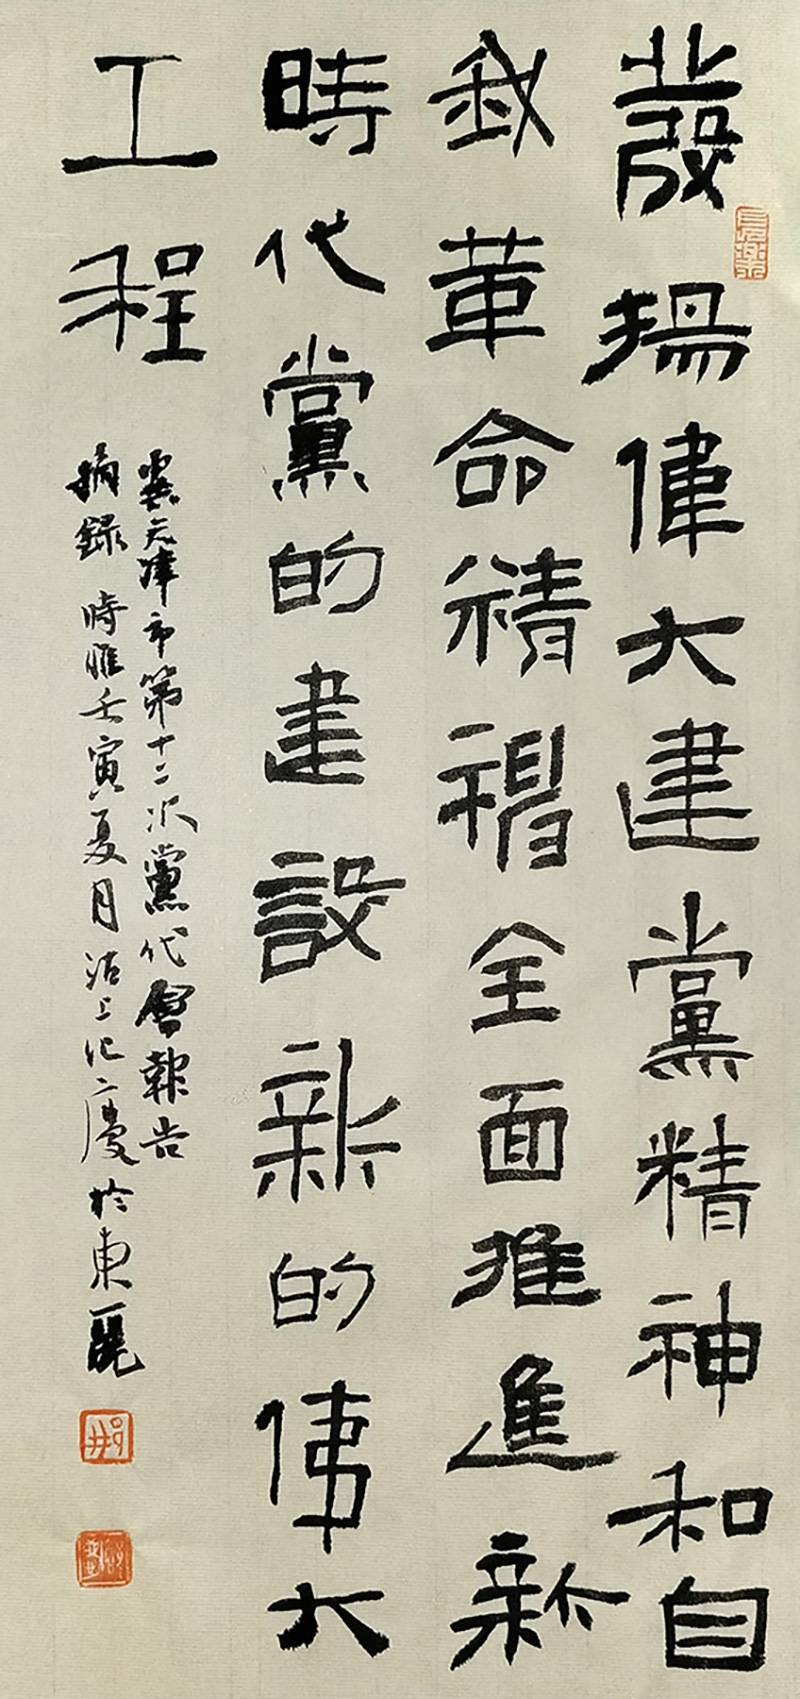 發揚偉大建黨精神和自
我革命精神全面推進新
時代黨的建設新的偉大
工程
天津市第十二次黨代會報告
摘錄 時惟壬寅夏月沽上慶於東麗